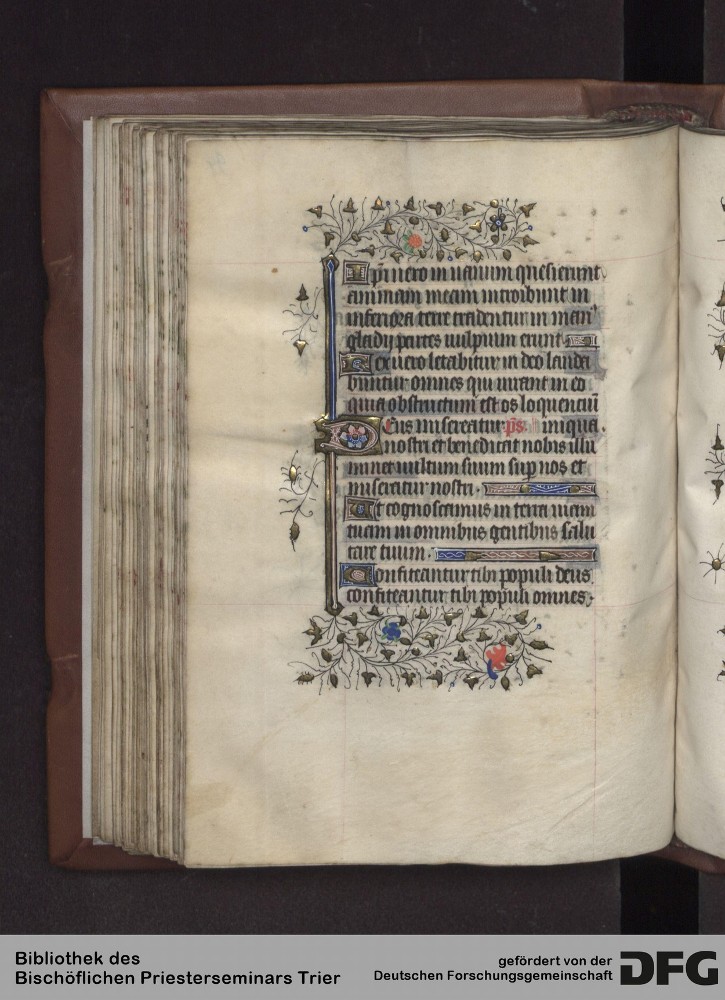 Ip̄i uero in uanum quesierunt
animam meam introibunt in
inferiora terre tradentur in man'
gladij partes uulpium erunt
Rex uero letabitur in deo lauda
buntur omnes qui iurant in eo
quia obstructum est os loquenciū
iniqua.
Deus misereatur ps̄.
nostri et benedicat nobis illu
minet uultum suum sup nos et
misereatur nostri.
Ut cognoscamus in terra uiam
tuam in omnibus gentibus salu
tare tuum.
Confiteantur tibi populi deus
confiteantur tibi populi omnes.
Bibliothek des
Bischöflichen Priesterseminars Trier
gefördert von der
Deutschen Forschungsgemeinschaft
DFG